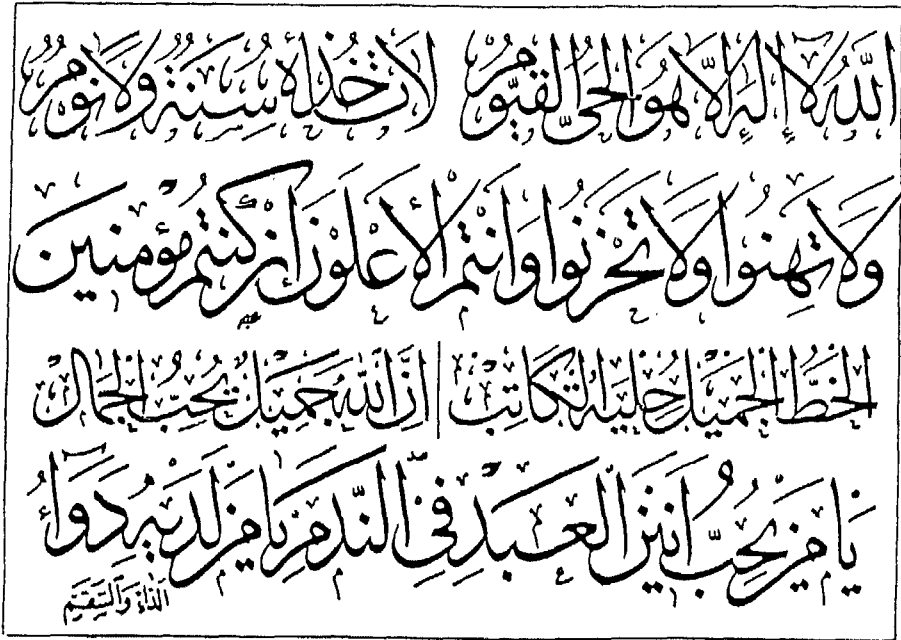 اللّٰهُ لَا إِلٰهَ إِلَّا هُوَ الْحَيُّ الْقَيُّومُ لَا تَأْخُذُهُ سِنَةٌ وَلَا نَوْمٌ
وَلَا تَهِنُوا وَلَا تَحْزَنُوا وَأَنْتُمُ الْأَعْلَوْنَ إِنْ كُنْتُمْ مُؤْمِنِينَ
الْخَطُّ الْجَمِيلُ حِلْيَةُ الْكَاتِبِ إِنَّ اللّٰهَ جَمِيلٌ يُحِبُّ الْجَمَالَ
يَا مَنْ يُحِبُّ أَنِينَ الْعَبْدِ فِي النَّدَمِ يَا مَنْ لَدَيْهِ دَوَاءُ
الدَّاءِ وَالسَّقَمِ